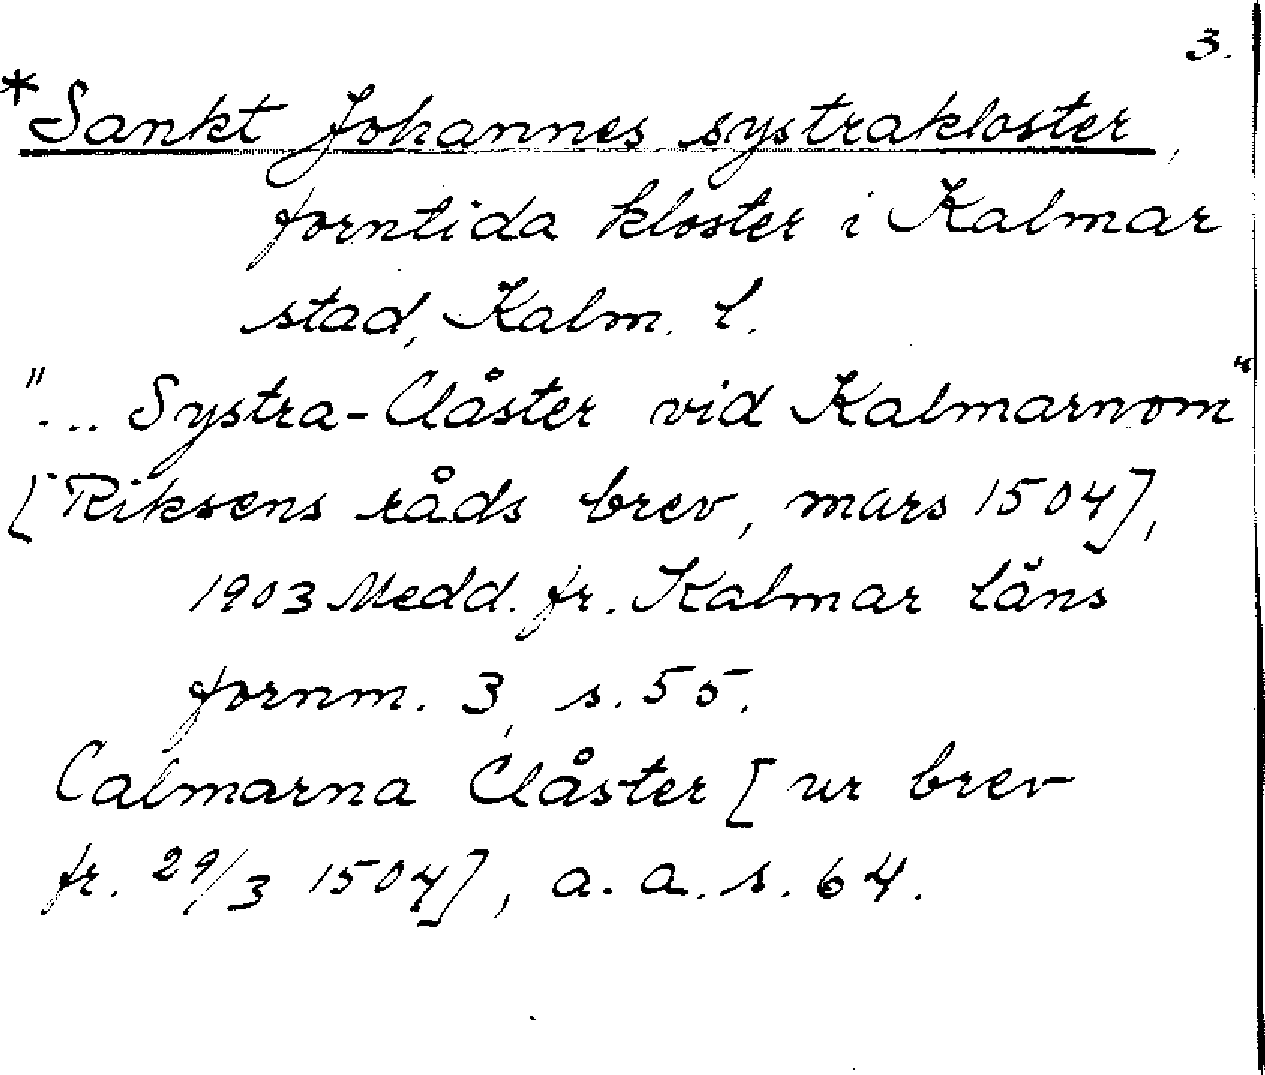 3.
*Sankt Johannes systrakloster,
forntida kloster i Kalmar
stad, Kalm. l.
"... Systra-Clåster vid Kalmarnom"
[Riksens råds brev, mars 1504],
1903 Medd. fr. Kalmar läns
fornm. 3, s. 55.
Calmarna Clåster [ur brev
fr. 29/3 1504], a. a. s. 64.